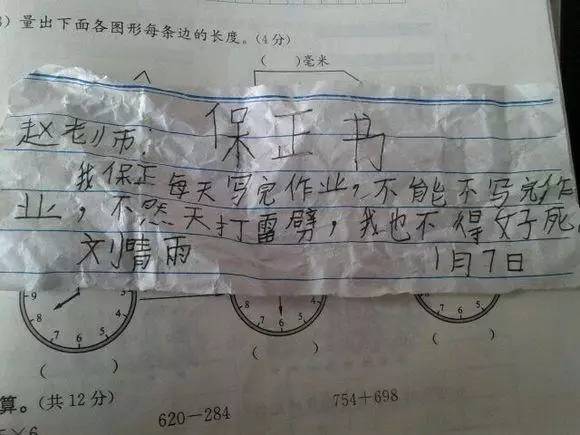 量出下面各图形每条边的长度。(4分)
(　　)毫米
保正书
赵老师:
我保正每天写完作业,不能不写完作
业,不然天打雷劈,我也不得好死。
刘晴雨
1月7日
9 8 7 6 5 4
8 7 6 5 4
7 6 5
(　　) (　　) (　　)
算。(共12分)
620－284 754＋698
×6